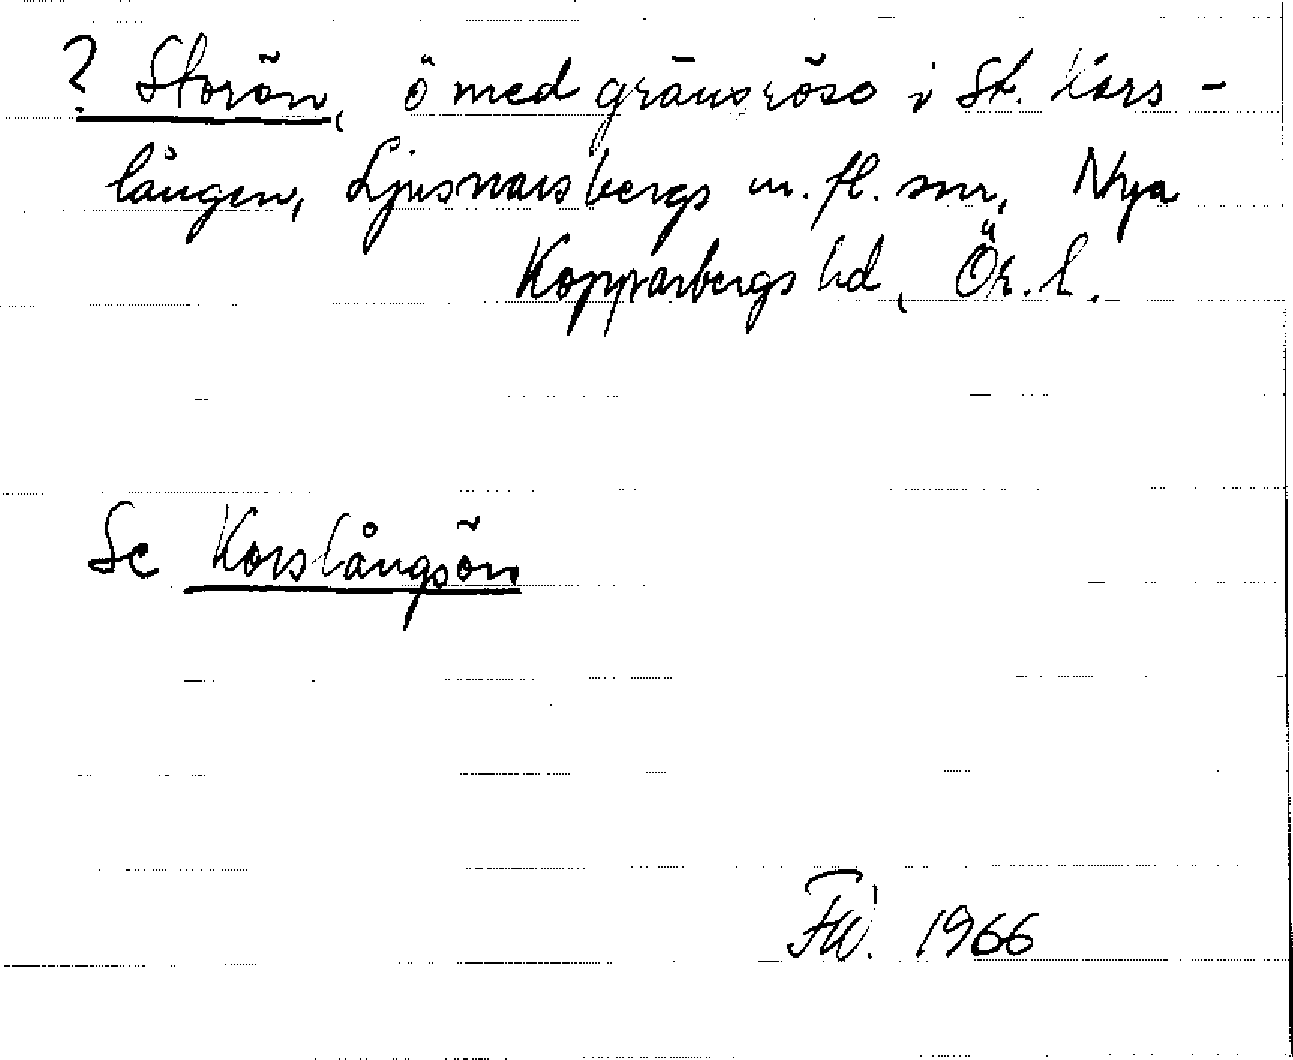 ? Storön, ö med gränsröse i St. Kors-
lången, Ljusnarsbergs m. fl. snr, Nya
Kopparbergs hd, Ör. l.
Se Korslångsön
FW. 1966